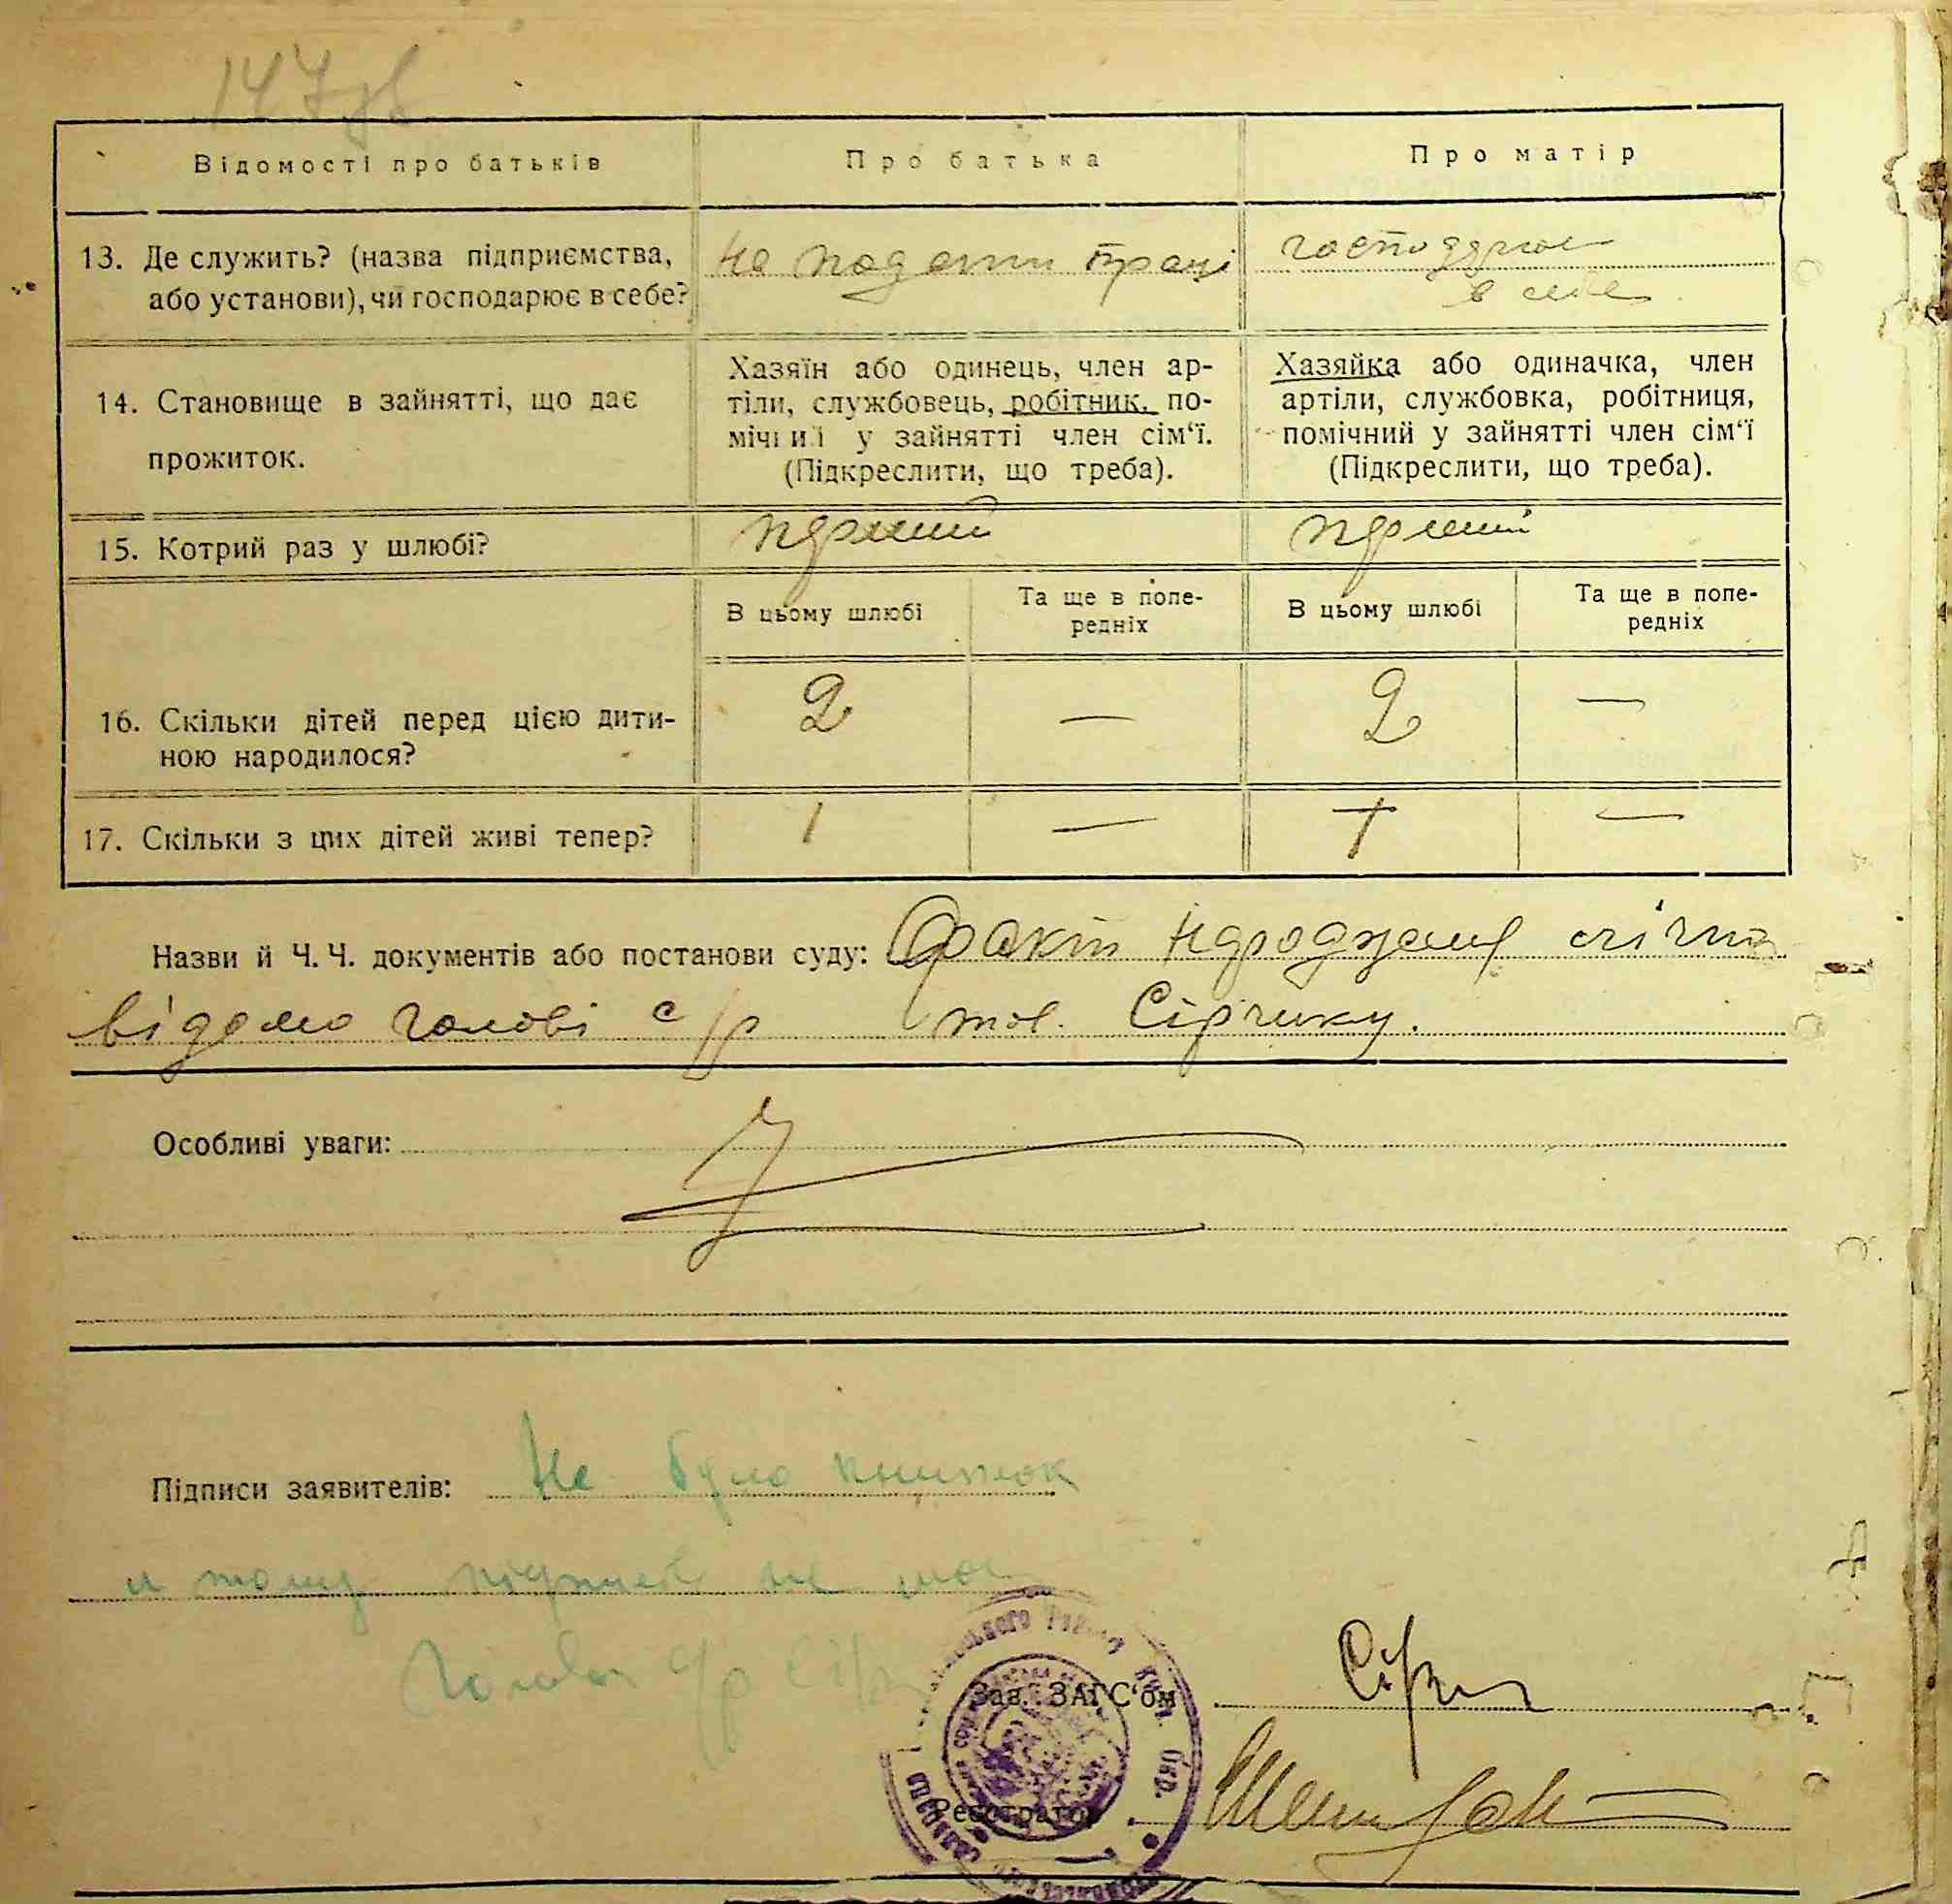 147зв
Відомості про батьків
Про батька
Про матір
13. Де служить? (назва підприємства,
або установи), чи господарює в себе?
на поденни праці
господарює
в себе
14. Становище в зайнятті, що дає
прожиток.
Хазяїн або одинець, член ар-
тіли, службовець, робітник, по-
мічний у зайнятті член сім‘ї.
(Підкреслити, що треба).
Хазяйка або одиначка, член
артіли, службовка, робітниця,
помічний у зайнятті член сім‘ї
(Підкреслити, що треба).
15. Котрий раз у шлюбі?
перший
перший
В цьому шлюбі
Та ще в попе-
редніх
В цьому шлюбі
Та ще в попе-
редніх
16. Скільки дітей перед цією дити-
ною народилося?
2
—
2
—
17. Скільки з цих дітей живі тепер?
1
—
1
—
Назви й Ч. Ч. документів або постанови суду: Факт народження
відомо голові с/р тов. Сірчику.
Особливі уваги:
Підписи заявителів: Не було книжок
и тому підписей не має
Голова с/р
Зав. ЗАГС‘ом
Реєстратор
Окр.